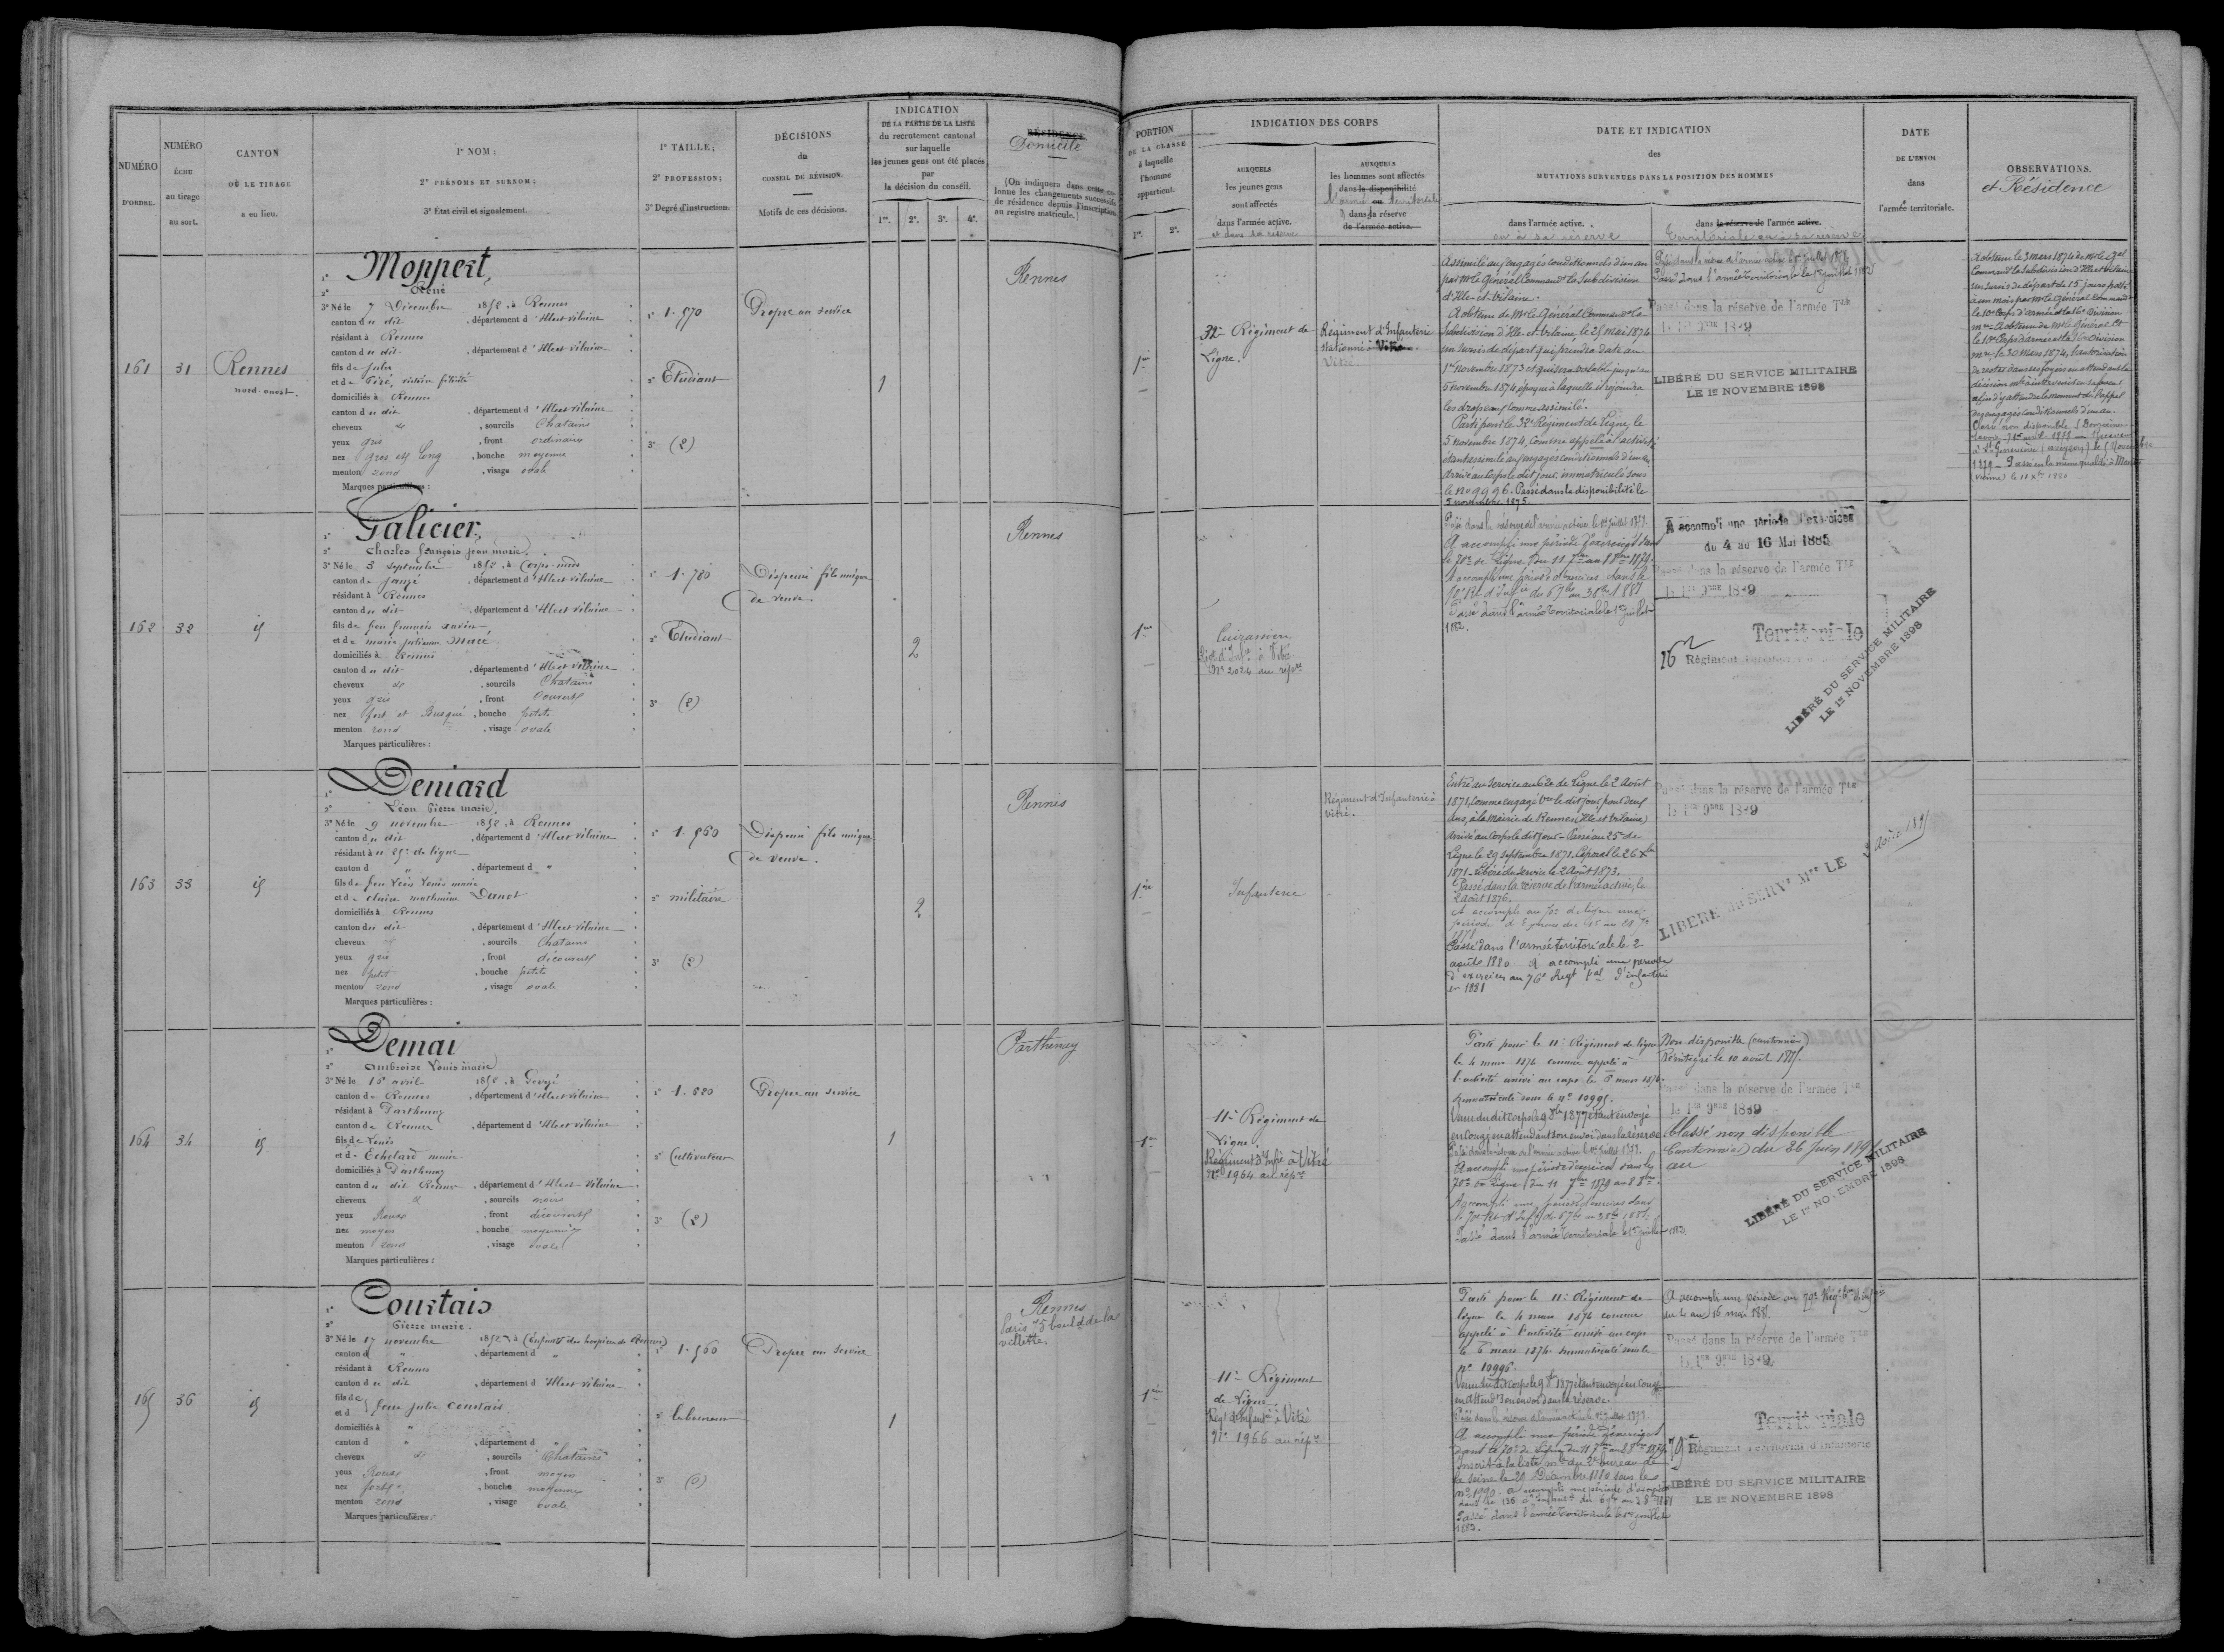 NUMÉRO
D'ORDRE.
NUMÉRO
ÉCHU
au tirage
au sort.
CANTON
OÙ LE TIRAGE
a eu lieu.
1º NOM;
2º PRÉNOMS ET SURNOM;
3º État civil et signalement.
1º TAILLE;
2º PROFESSION;
3º Degré d'instruction.
DÉCISIONS
du
CONSEIL DE RÉVISION.
Motifs de ces décisions.
INDICATION
DE LA PARTIE DE LA LISTE
du recrutement cantonal
sur laquelle
les jeunes gens ont été placés
par
la décision du conseil.
1re. 2e. 3e. 4e.
RÉSIDENCE
Domicile
(On indiquera dans cette co-
lonne les changements successifs
de résidence depuis l'inscription
au registre matricule.)
PORTION
DE LA CLASSE
à laquelle
l'homme
appartient.
1re. 2e.
INDICATION DES CORPS
AUXQUELS
les jeunes gens
sont affectés
dans l'armée active.
et dans sa réserve
AUXQUELS
les hommes sont affectés
dans la disponibilité
l'armée ou territoriale
dans la réserve
de l'armée active.
DATE ET INDICATION
des
MUTATIONS SURVENUES DANS LA POSITION DES HOMMES
dans l'armée active.
ou à sa réserve
dans la réserve de l'armée active.
Territoriale ou à sa réserve
DATE
DE L'ENVOI
dans
l'armée territoriale.
OBSERVATIONS.
et Résidence
161
31
Rennes
nord-ouest.
1º Moppert,
2º René
3º Né le 7 Décembre 1852, à Rennes
canton du dit, département d'Ille et vilaine
résidant à Rennes
canton du dit, département d'Ille et vilaine
fils de Jules
et de
domiciliés à Rennes
canton du dit, département d'Ille et vilaine
cheveux, sourcils Chatains
yeux gris, front ordinaire
nez gros et long, bouche moyenne
menton rond, visage ovale
Marques particulières :
1º 1.570
2º Etudiant
3º (2)
Propre au service
1
Rennes
1re
32e Régiment de
Ligne.
Régiment d'Infanterie
stationné à Vitré
Vitré.
Assimilé aux engagés conditionnels d'un an
par Mr le Général Commandt la Subdivision
d'Ille-et-Vilaine.
A obtenu de Mr le Général Commandt la
Subdivision d'Ille-et-Vilaine, le 25 mai 1874
un sursis de départ qui prendra date au
1er novembre 1873 et qui sera valable jusqu'au
5 novembre 1874 époque à laquelle il rejoindra
les drapeaux comme assimilé.
Parti pour le 32e Régiment de Ligne, le
5 novembre 1874, comme appelé à l'activité
étant assimilé aux engagés conditionnels d'un an
Arrivé au Corps le dit jour, immatriculé sous
le no 9996. Passé dans la disponibilité le
5 novembre 1875.
Passé dans l'armée territoriale le 1er juillet 1882
Passé dans la réserve de l'armée Tle
le 1er 9bre 1889
LIBÉRÉ DU SERVICE MILITAIRE
LE 1er NOVEMBRE 1898
A obtenu le 3 mars 1874 de Mr le Gal
Commandt la Subdivision d'Ille et Vilaine
un sursis de départ de 15 jours porté
à un mois par Mr le Général Command
le 10e Corps d'armée et la 16e Division
mre. A obtenu de Mr le Général Ct
le 10e Corps d'armée et la 16e Division
mre, le 30 mars 1874, l'autorisation
de rester dans ses foyers en attendant la
décision
afin d'y attendre le moment de l'appel
des engagés conditionnels d'un an.
Classé non disponible
1879 - Passé en la même qualité à
(Vienne) le 11 Xbre 1880
162
32
id
1º Galicier,
2º Charles françois jean marie.
3º Né le 3 septembre 1852, à Corps-nuds
canton de Janzé, département d'Ille et vilaine
résidant à Rennes
canton du dit, département d'Ille et vilaine
fils de feu françois xavier
et de marie julienne Macé
domiciliés à Rennes
canton du dit, département d'Ille et vilaine
cheveux, sourcils Chatains
yeux gris, front couvert
nez fort et Busqué, bouche petite
menton rond, visage ovale
Marques particulières :
1º 1.780
2º Etudiant
3º (2)
Dispensé fils unique
de veuve.
2
Rennes
1re
Cuirassier
Régt d'Infie à Vitré
No 2024 au répre
Passé dans la réserve de l'armée active le 1er juillet 1877.
A accompli une période d'exercices dans
le 70e de Ligne, du 11 7bre au 8 8bre 1879.
A accompli une période d'exercices dans le
Passé dans l'armée territoriale le 1er juillet
1882.
A accompli une période d'exercices
du 4 au 16 Mai 1885
Passé dans la réserve de l'armée Tle
le 1er 9bre 1889
Territoriale
Régiment
LIBÉRÉ DU SERVICE MILITAIRE
LE 1er NOVEMBRE 1898
163
33
id
1º Deniard
2º Léon Pierre marie.
3º Né le 9 novembre 1852, à Rennes
canton du dit, département d'Ille et vilaine
résidant à u 25e de ligne
canton d ", département d "
fils de feu Léon Louis marie
et de claire mathurine Danet
domiciliés à Rennes
canton du dit, département d'Ille et vilaine
cheveux, sourcils Chatains
yeux gris, front découvert
nez petit, bouche petite
menton rond, visage ovale
Marques particulières :
1º 1.560
2º militaire
3º (2)
Dispensé fils unique
de veuve.
2
Rennes
1re
Infanterie
Régiment d'Infanterie à
Vitré.
Entré au service au 62e de Ligne le 2 Août
1871, comme engagé Vre le dit jour, pour deux
ans, à la Mairie de Rennes (Ille et Vilaine)
Arrivé au Corps le dit jour - Passé au 25e de
Ligne le 29 septembre 1871. Caporal le 26 Xbre
1871 - Libéré du service le 2 Août 1873.
Passé dans la réserve de l'armée active, le
2 août 1876.
Passé dans l'armée territoriale le 2
août 1880. A accompli une période
d'exercices au 76e Régt tal d'infanterie
en 1881
Passé dans la réserve de l'armée Tle
le 1er 9bre 1889
LIBÉRÉ du SERVe Mre LE 3 Août 1891
164
34
id
1º Demai
2º Ambroise Louis marie
3º Né le 15 avril 1852, à Gevezé
canton de Rennes, département d'Ille et vilaine
résidant à Parthenay
canton de Rennes, département d'Ille et vilaine
fils de Louis
et de Echelard marie
domiciliés à Parthenay
canton du dit Rennes, département d'Ille et Vilaine
cheveux, sourcils noirs
yeux Roux, front découvert
nez moyen, bouche moyenne
menton rond, visage ovale
Marques particulières :
1º 1.620
2º Cultivateur
3º (2)
Propre au service
1
Parthenay
1re
11e Régiment de
Ligne.
Régiment d'Infie à Vitré
No 1964 au répre
Parti pour le 11e Régiment de ligne
le 4 mars 1874 comme appelé à
l'activité arrivé au corps le 6 mars 1874.
Immatriculé sous le no 10995.
Venu du dit corps le 9 8bre 1877 étant envoyé
en congé en attendant son envoi dans la réserve.
Passé dans la réserve de l'armée active le 1er juillet 1877.
A accompli une période d'exercices dans le
70e de Ligne, du 11 7bre 1879 au 8 8bre.
Passé dans l'armée territoriale le 1er juillet 1882.
Non disponible (cantonnier)
Réintégré le 10 août 1885.
Passé dans la réserve de l'armée Tle
le 1er 9bre 1889
Classé non disponible
(Cantonnier) du 26 Juin 1891
au
LIBÉRÉ DU SERVICE MILITAIRE
LE 1er NOVEMBRE 1898
165
36
id
1º Courtais
2º Pierre marie.
3º Né le 17 novembre 1852, à (Enfants des hospices de Rennes)
canton d ", département d "
résidant à Rennes
canton du dit, département d'Ille et vilaine
fils de
et d feue julie Courtais
domiciliés à "
canton d ", département d "
cheveux, sourcils Chatains
yeux Roux, front moyen
nez fort, bouche moyenne
menton rond, visage ovale
Marques particulières :
1º 1.560
2º laboureur
3º (0)
Propre au service
1
Rennes
Paris 75 bould de la
villette.
1re
11e Régiment
de Ligne.
Régt d'Infantie à Vitré
No 1966 au répre
Parti pour le 11e Régiment de
ligne le 4 mars 1874 comme
appelé à l'activité arrivé au corps
le 6 mars 1874. Immatriculé sous le
no 10996.
Venu du dit corps le 9 8bre 1877 étant envoyé en congé
en attendt son envoi dans la réserve.
Passé dans la réserve de l'armée active le 1er juillet 1877.
A accompli une période d'exercices
dans le 70e de Ligne, du 11 7bre au 8 8bre 1879.
Inscrit à la liste mle du 2e bureau de
la Seine le 21 Décembre 1880 sous le
no 1990. A accompli une période d'exercices
Passé dans l'armée territoriale le 1er juillet
1882.
A accompli une période au 79e Régt tal d'Infie
du 4 au 16 mai 1885.
Passé dans la réserve de l'armée Tle
le 1er 9bre 1889
Territoriale
79e Régiment territorial d'infanterie
LIBÉRÉ DU SERVICE MILITAIRE
LE 1er NOVEMBRE 1898